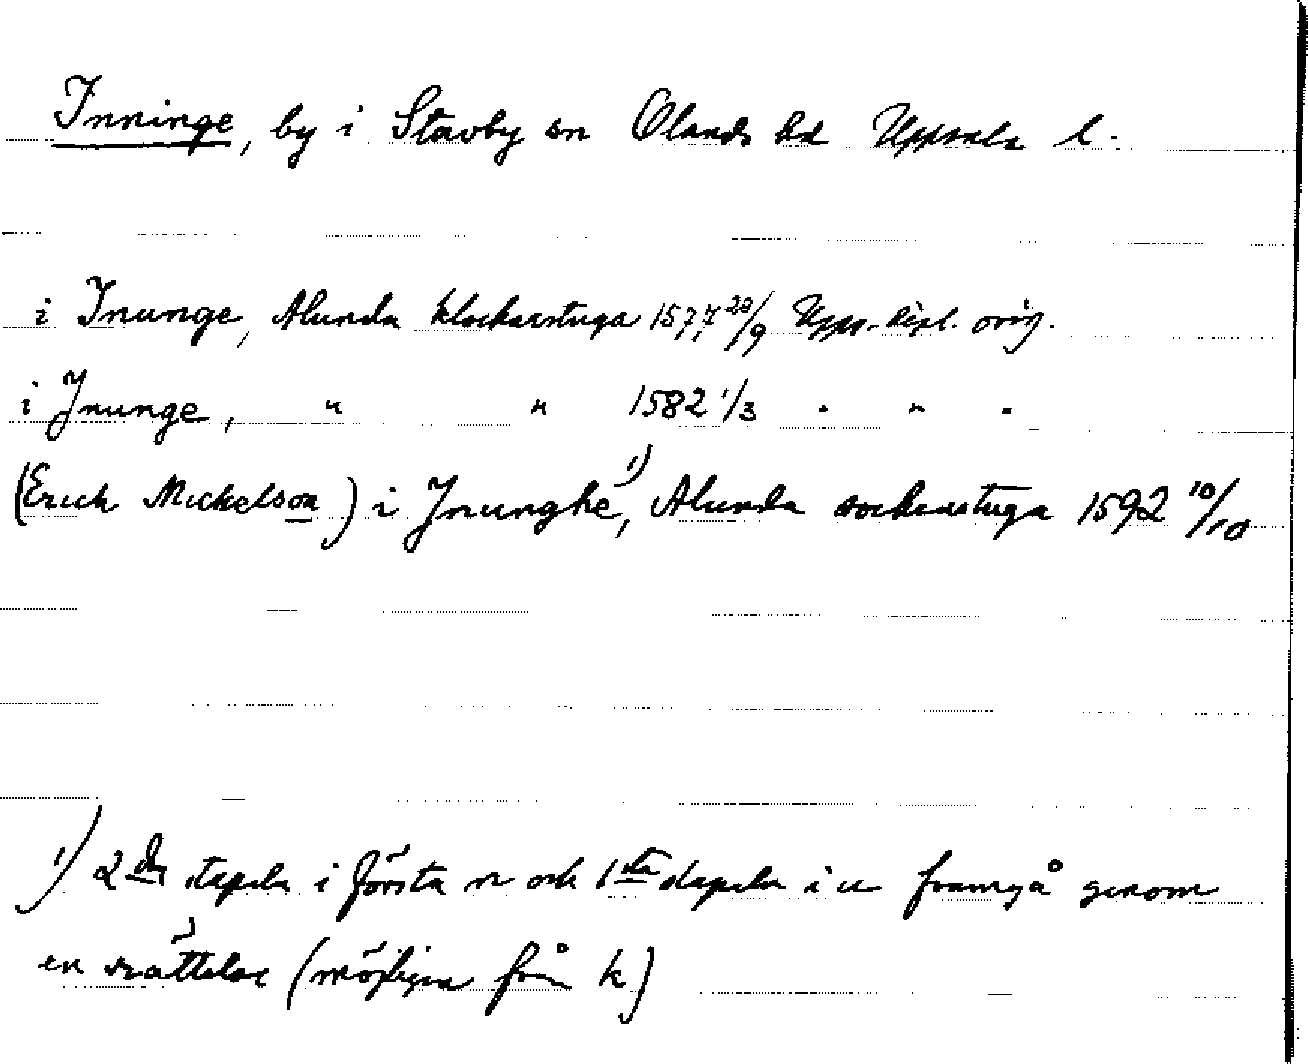 Inninge, by i Stavby sn Olands hd Uppsala l.
i Inunge, Alunda klockarstuga 1577 20/9 Upps. dipl. orig.
i Jnunge, " " 1582 1/3 " " "
(Erich Mickelson) i Jnunghe,¹⁾ Alunda sockenstuga 1592 10/10
1) 2dra stapeln i första n och 1sta stapeln i u framgå genom
en rättelse (möjligen från k)